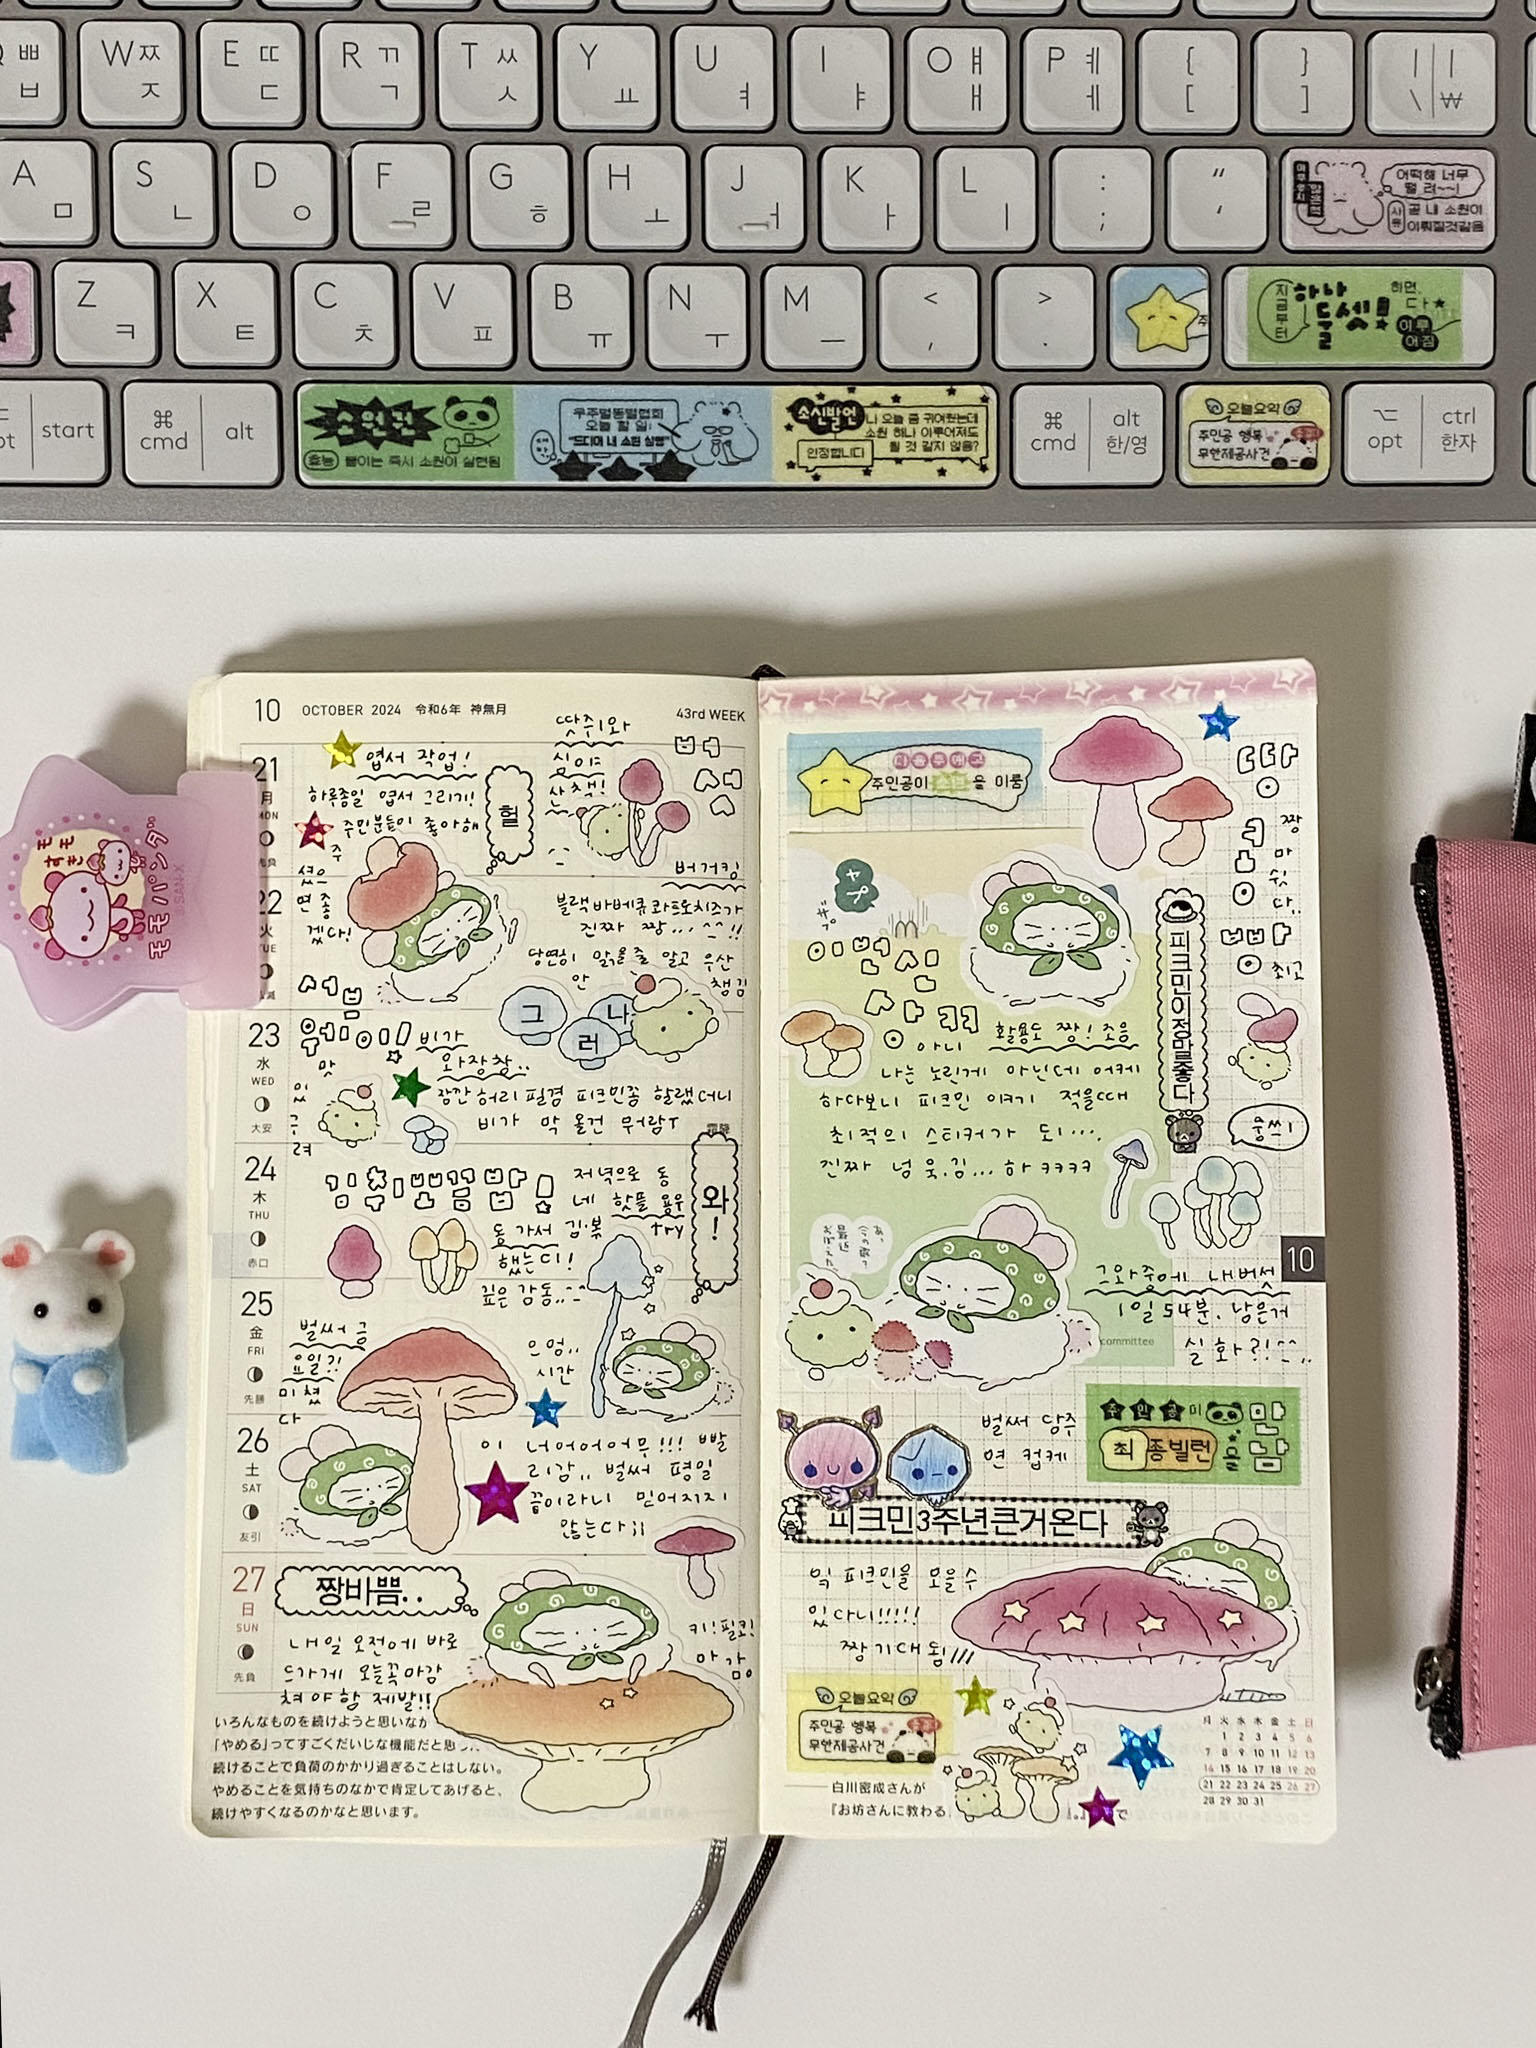 Q ㅃ ㅂ
W ㅉ ㅈ
E ㄸ ㄷ
R ㄲ ㄱ
T ㅆ ㅅ
Y ㅛ
U ㅕ
I ㅑ
O ㅒ ㅐ
P ㅖ ㅔ
{ [
} ]
| \ ₩
A ㅁ
S ㄴ
D ㅇ
F ㄹ
G ㅎ
H ㅗ
J ㅓ
K ㅏ
L ㅣ
: ;
" '
어떡해 너무
떨 려~~!
사유 곧 내 소원이
이뤄질것같음
Z ㅋ
X ㅌ
C ㅊ
V ㅍ
B ㅠ
N ㅜ
M ㅡ
< ,
> .
지금부터
하나 둘 셋 하면,
이루어짐
start
⌘ cmd
alt
소원권
효능 붙이는 즉시 소원이 실현됨
우주별동별협회
오늘 할 일:
"드디어 내 소원 실행"
소신발언
나 오늘 좀 귀여웠는데
소원 하나 이루어져도
될 것 같지 않음?
인정합니다
⌘ cmd
alt 한/영
오늘요약
주인공 행복
무한제공사건
⌥ opt
ctrl 한자
10 OCTOBER 2024 令和6年 神無月 43rd WEEK
21 月 MON
엽서 작업!
하루종일 엽서 그리기!
주민분들이 좋아해
주셨으면 좋겠다!
헐
땃쥐와
심야
산책!
버섯
22 火 TUE
버거킹
블랙바베큐콰트로치즈가
진짜 짱...^^!!
당연히 알 줄 알고 우산
안 챙김
그 러 나
23 水 WED 大安
비가
와장창..
잠깐 허리 필겸 피크민좀 할랬더니
비가 막 올건 뭐람ㅜ
맛있구려
霜降
24 木 THU 赤口
김치볶음밥!
저녁으로 동
네 핫플 용우
동 가서 김.볶 try
했는디!
깊은 감동..^^
와!
25 金 FRI 先勝
벌써 금
요일?!
미쳤다
으엄..
시간
26 土 SAT 友引
이 너어어어어무!!! 빨
리감.. 벌써 평일
끝이라니 믿어지지
않는다;;
27 日 SUN 先負
짱바쁨..
내일 오전에 바로
드가게 오늘꼭마감
쳐야함 제발!!
키!필코!
마감
いろんなものを続けようと思いなが
「やめる」ってすごくだいじな機能だと思
続けることで負荷のかかり過ぎることはしない。
やめることを気持ちのなかで肯定してあげると、
続けやすくなるのかなと思います。
주인공이 소원을 이룸
짱마싯다..
최고
피크민이정말좋다
이번 스티커
아니 활용도 짱! 조음
나는 노린게 아닌데 어케
하다보니 피크민 얘기 적을때
최적의 스티커가 되...
진짜 넘 욱.김... 하 ㅋㅋㅋㅋ
웅쓰!
10
그와중에 내버섯
1일 54분. 남은거
실화?!^^..
committee
벌써 담주
면 컵케
주인공이
최종빌런을 만남
피크민3주년큰거온다
익 피크민을 모을수
있다니!!!!!
짱 기대됨///
오늘요약
주인공 행복
무한제공사건
白川密成さんが
『お坊さんに教わる
月 火 水 木 金 土 日
1 2 3 4 5 6
7 8 9 10 11 12 13
14 15 16 17 18 19 20
21 22 23 24 25 26 27
28 29 30 31
モモすもモ
モモパンダ
©SAN-X